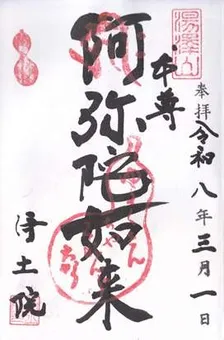 奉拝
令和八年三月一日
本尊
阿弥陀如来
浄土院